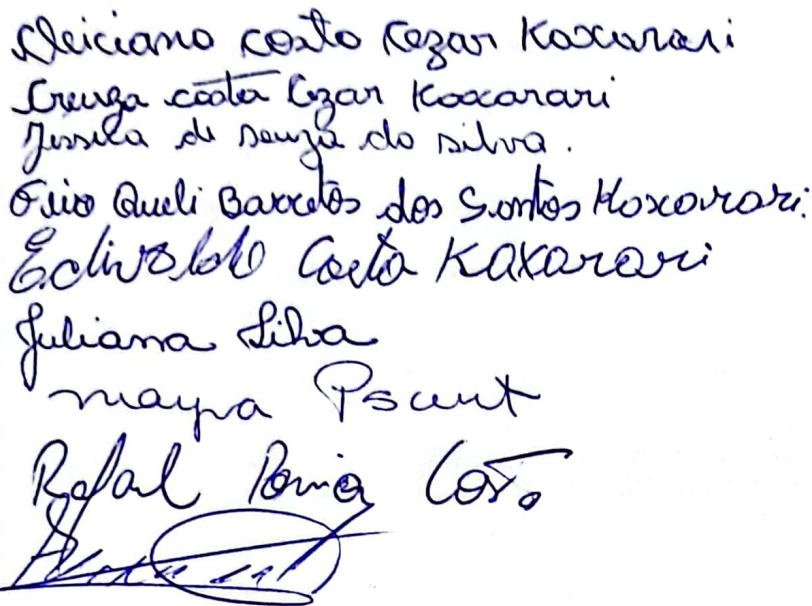 Cleiciano Costa Cezar Kaxarari
Creuza Costa Cezar Kaxarari
Jessica de Souza da Silva.
Queli Barretos dos Santos Kaxarari.
Edivaldo Costa Kaxarari
Juliana Silva
Mayra
Rafael